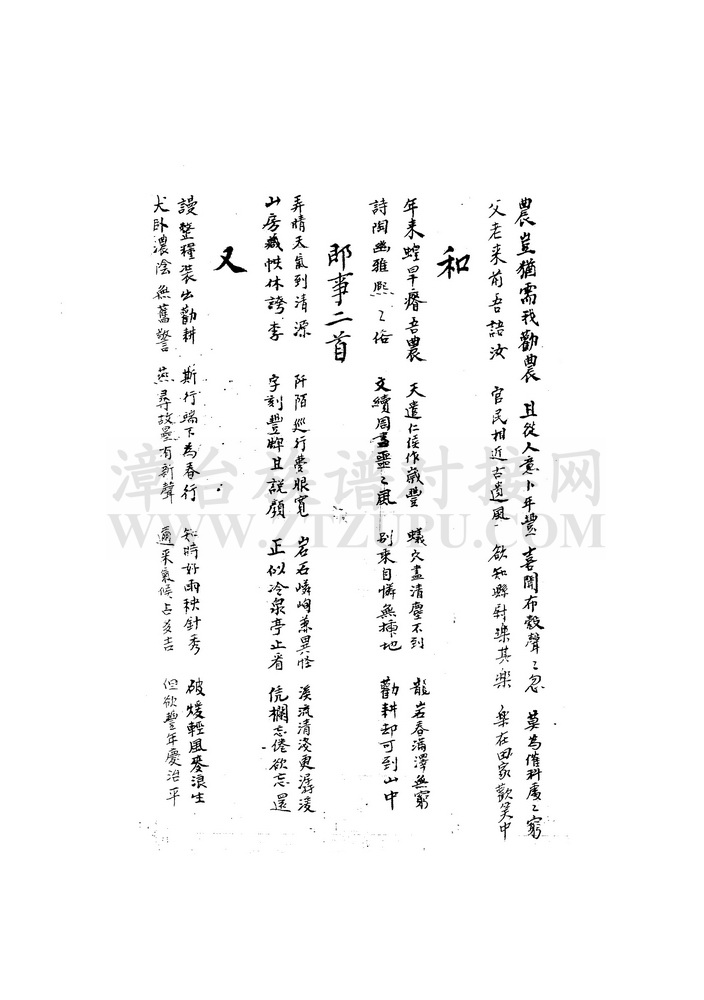 農豈猶需我勸農 且從人意卜年豐 喜聞布穀聲〻忽 莫為催科處〻窮
父老来前吾語汝 官民相近古遺風 欲知縣尉楽其楽 楽在田家歡笑中
和
年来蝗旱瘠吾農 天遣仁侯作歲豐 蟻穴盡清塵不到 龍岩春滿澤無窮
詩陶幽雅熙〻俗 文續周書噩〻風 別来自憐無揷地 勸耕却可到山中
即事二首
弄晴天氣到清源 阡陌巡行費眼寬 岩石嶙峋兼異怪 溪流清淺更潺湲
山房藏帙休誇李 字刻豐碑且説顔 正似冷泉亭上看 凭欄忘倦欲忘還
又
謾整糧装出勸耕 斯行端下為春行 知時好雨秧針秀 破煖輕風麥浪生
犬臥濃陰無舊警 燕尋故壘有新聲 邇来氣候占多吉 但欲豐年慶治平
漳台族谱对接网
WWW.ZTZUPU.COM